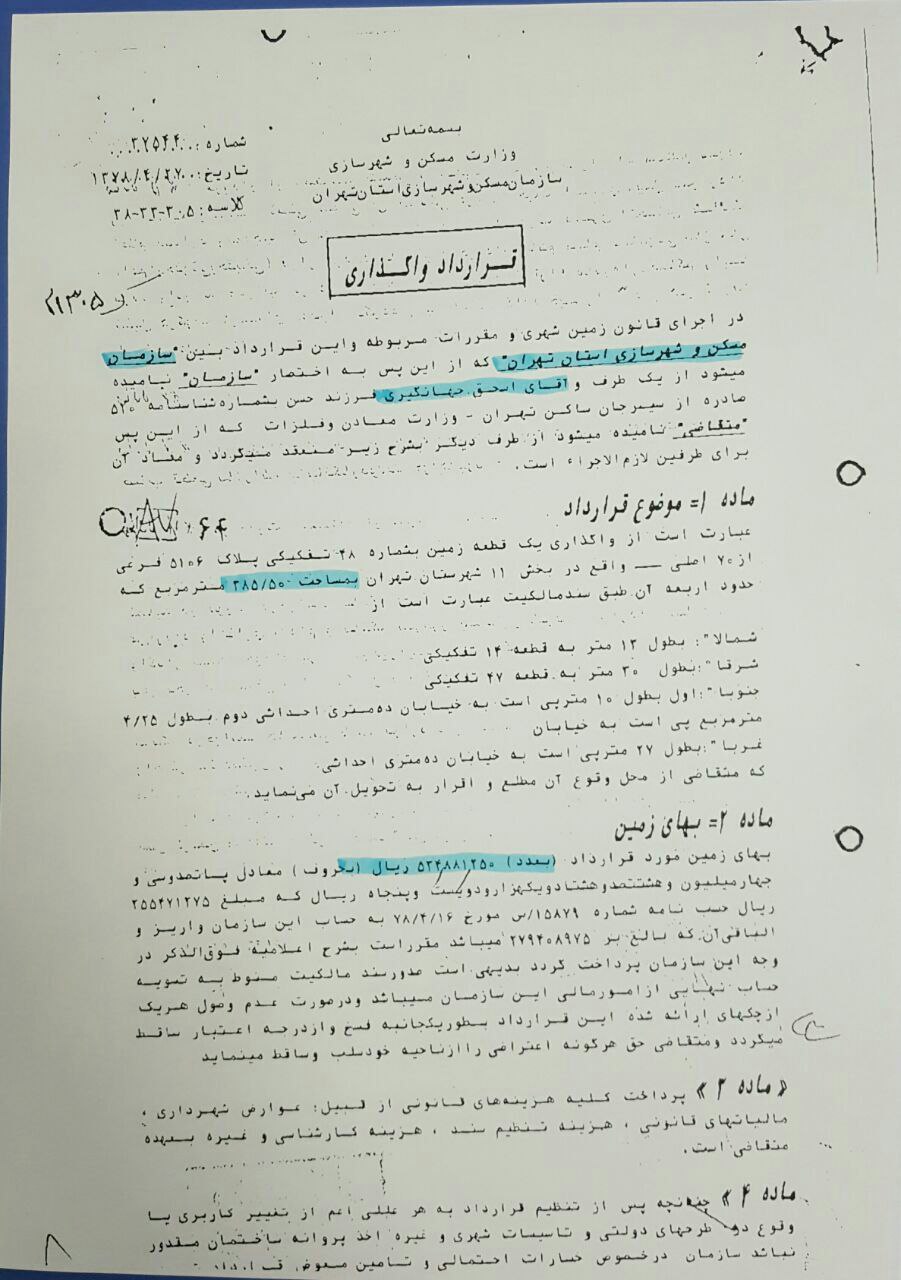 بسمه‌تعالی
وزارت مسکن و شهرسازی
سازمان مسکن و شهرسازی استان تهران
شماره: ۳۲۵۴۴
تاریخ: ۱۳۷۸/۴/۲۷
کلاسه: ۳۸-۳۳-۳۰۵
قرارداد واگذاری
در اجرای قانون زمین شهری و مقررات مربوطه واین قرارداد بین "سازمان
مسکن و شهرسازی استان تهران" که از این پس به اختصار "سازمان" نامیده
میشود از یک طرف و آقای اسحق جهانگیری فرزند حسن بشماره شناسنامه ۵۲۰
صادره از سیرجان ساکن تهران - وزارت معادن وفلزات که از این پس
"متقاضی" نامیده میشود از طرف دیگر بشرح زیر منعقد میگردد و مفاد آن
برای طرفین لازم‌الاجراء است.
ماده ۱= موضوع قرارداد
عبارت است از واگذاری یک قطعه زمین بشماره ۴۸ تفکیکی پلاک ۵۱۰۶ فرعی
از ۷۰ اصلی — واقع در بخش ۱۱ شهرستان تهران بمساحت ۳۸۵/۵۰ مترمربع که
حدود اربعه آن طبق سندمالکیت عبارت است از
شمالا": بطول ۱۳ متر به قطعه ۱۴ تفکیکی
شرقا": بطول ۳۰ متر به قطعه ۴۷ تفکیکی
جنوبا": اول بطول ۱۰ مترپی است به خیابان ده‌متری احداثی دوم بطول ۴/۲۵
مترمربع پی است به خیابان
غربا": بطول ۲۷ مترپی است به خیابان ده‌متری احداثی.
که متقاضی از محل وقوع آن مطلع و اقرار به تحویل آن می‌نماید.
ماده ۲= بهای زمین
بهای زمین مورد قرارداد (بعدد) ۵۳۴۸۸۱۲۵۰ ریال (بحروف) معادل پانصدوسی و
چهارمیلیون و هشتصدوهشتادویکهزارودویست وپنجاه ریال که مبلغ ۲۵۵۴۷۱۲۷۵
ریال حسب نامه شماره ۱۵۸۷۹/س مورخ ۷۸/۴/۱۶ به حساب این سازمان واریز و
الباقی‌آن که بالغ بر ۲۷۹۴۰۸۹۷۵ میباشد مقرراست بشرح اعلامیه فوق‌الذکر در
وجه این سازمان پرداخت گردد بدیهی است صدورسند مالکیت منوط به تسویه
حساب نهایی ازامورمالی این سازمان میباشد ودرصورت عدم وصول هریک
ازچکهای ارائه شده این قرارداد بطوریکجانبه فسخ وازدرجه اعتبار ساقط
میگردد ومتقاضی حق هرگونه اعتراضی راازناحیه خودسلب وساقط مینماید
«ماده ۳» پرداخت کلیه هزینه‌های قانونی از قبیل: عوارض شهرداری،
مالیاتهای قانونی، هزینه تنظیم سند، هزینه کارشناسی و غیره بعهده
متقاضی است.
ماده ۴» چنانچه پس از تنظیم قرارداد به هر عللی اعم از تغییر کاربری یا
وقوع در طرحهای دولتی و تاسیسات شهری و غیره اخذ پروانه ساختمان مقدور
نباشد سازمان درخصوص خسارات احتمالی و تامین معوض
۸